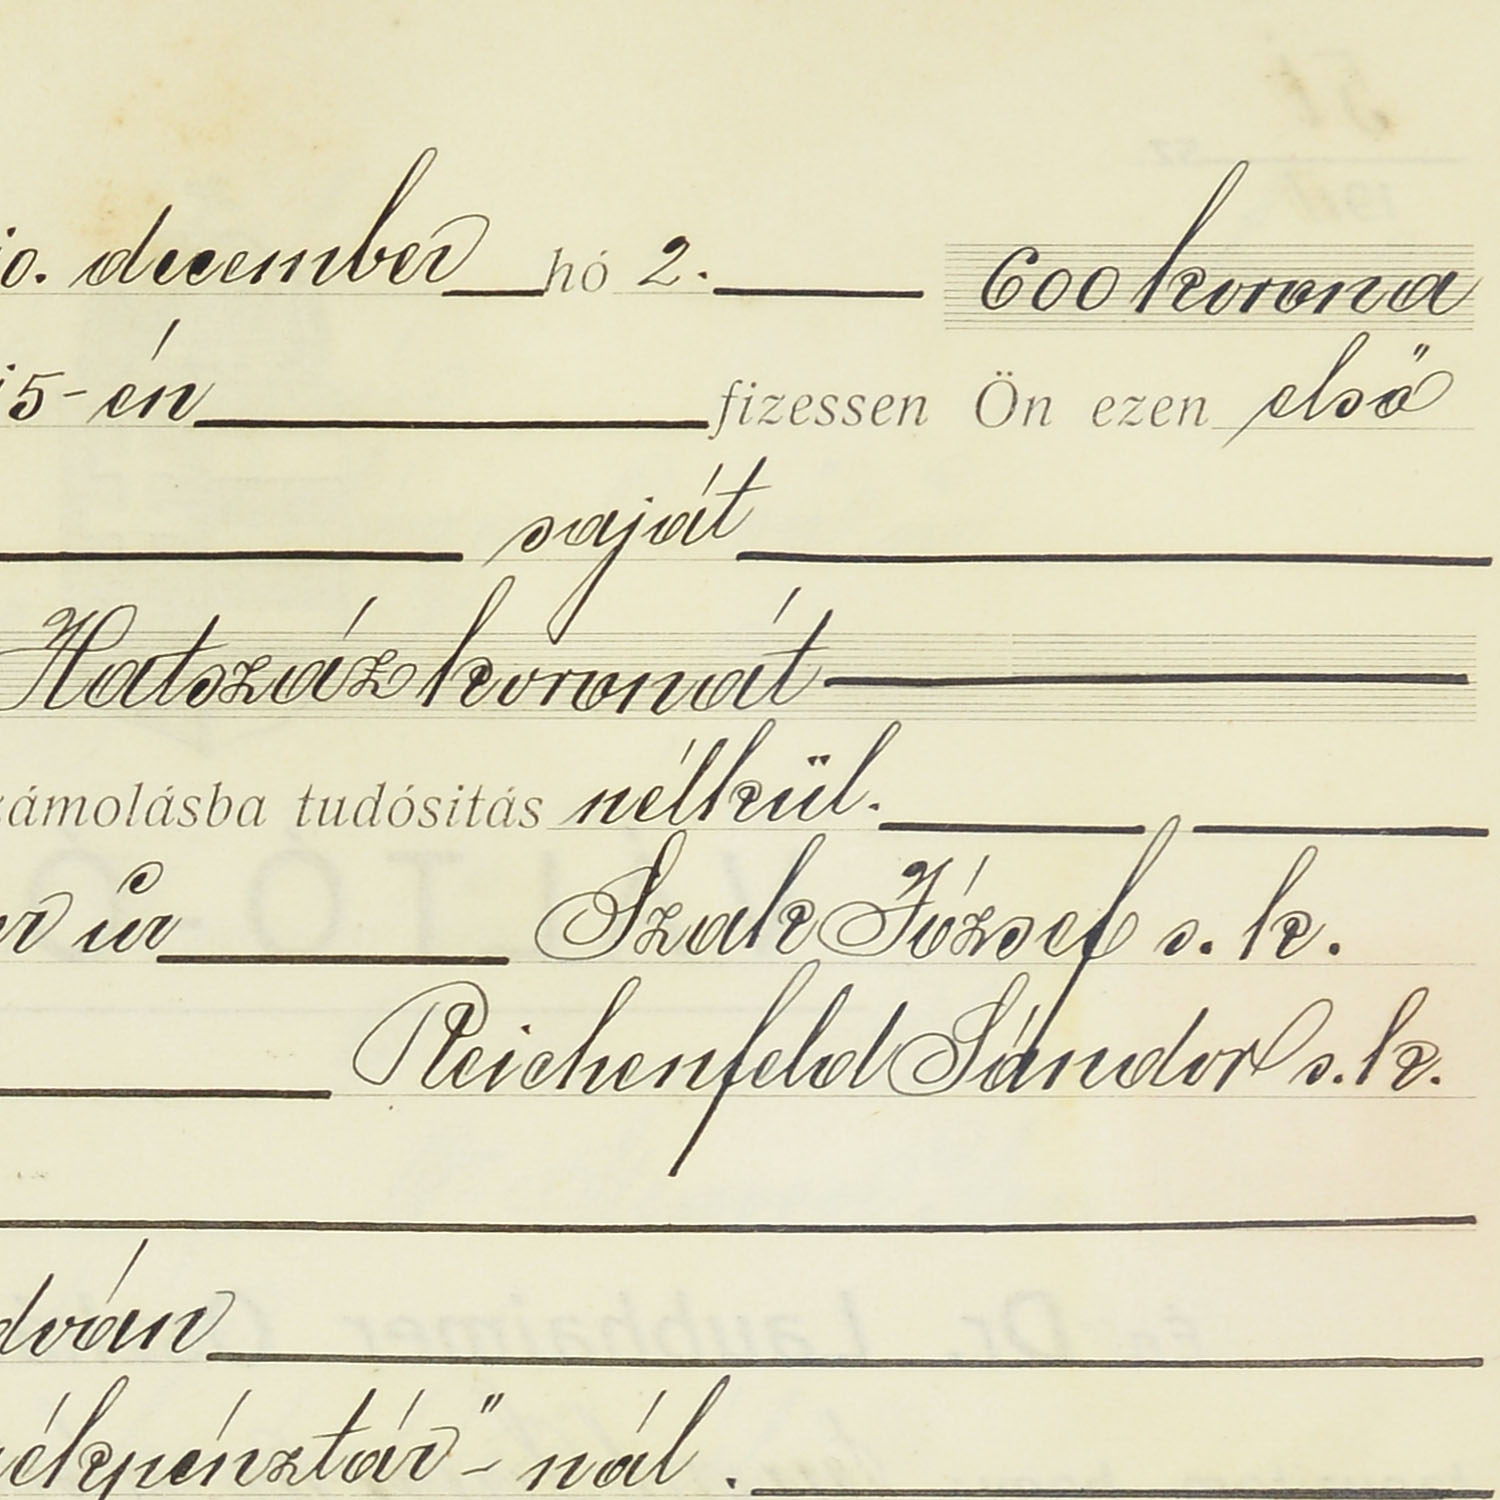 10. december hó 2. 600 korona
15-én fizessen Ön ezen első
saját
Hatszáz koronát
zámolásba tudósitás nélkül.
úr Szak József s. k.
Reichenfeld Sándor s. k.
dván
ékpénztár"-nál.